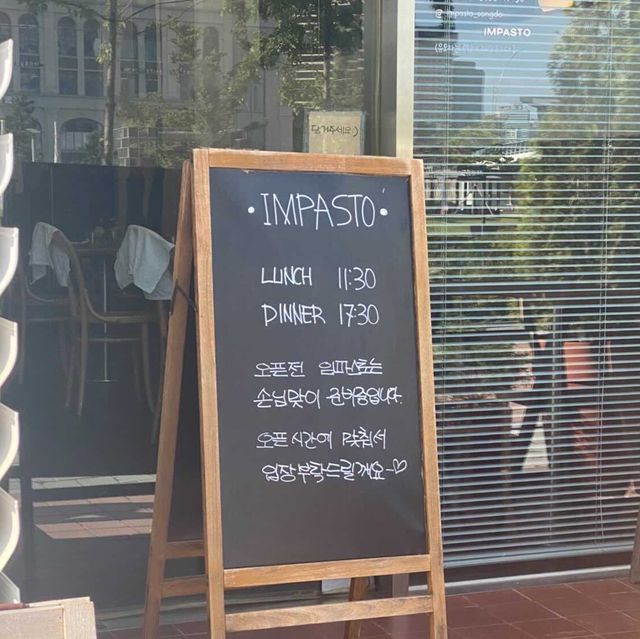 @impasto_songdo
IMPASTO
당겨주세요:)
·IMPASTO·
LUNCH 11:30
DINNER 17:30
오픈전 임파스토는
손님맞이 준비중입니다.
오픈시간에 맞춰서
입장부탁드릴게요~♡